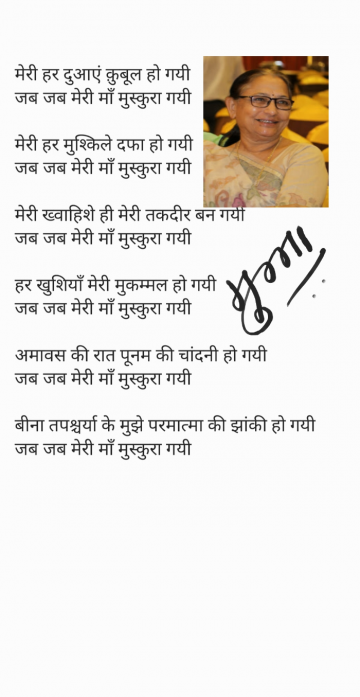 मेरी हर दुआएं क़ुबूल हो गयी
जब जब मेरी माँ मुस्कुरा गयी
मेरी हर मुश्किले दफा हो गयी
जब जब मेरी माँ मुस्कुरा गयी
मेरी ख्वाहिशे ही मेरी तकदीर बन गयी
जब जब मेरी माँ मुस्कुरा गयी
हर खुशियाँ मेरी मुकम्मल हो गयी
जब जब मेरी माँ मुस्कुरा गयी
अमावस की रात पूनम की चांदनी हो गयी
जब जब मेरी माँ मुस्कुरा गयी
बीना तपश्चर्या के मुझे परमात्मा की झांकी हो गयी
जब जब मेरी माँ मुस्कुरा गयी